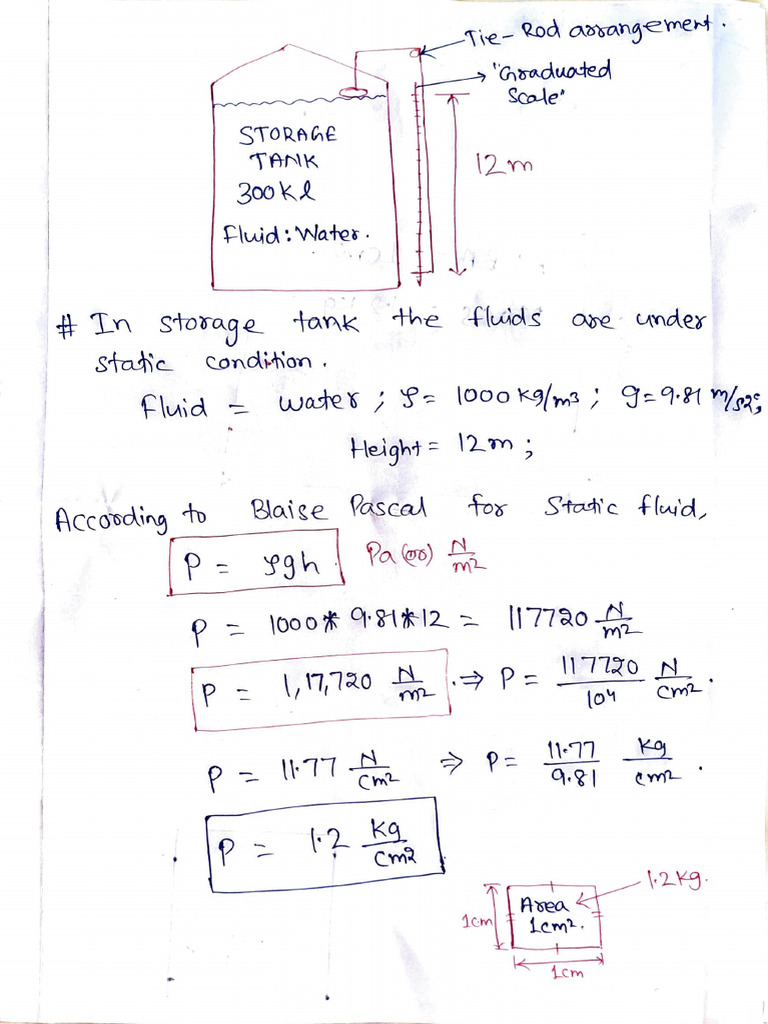 Tie-Rod arrangement.
"Graduated
Scale"
STORAGE
TANK
300Kl
fluid: Water.
12m
# In storage tank the fluids are under
static condition.
Fluid = water ; ρ = 1000 kg/m3 ; g=9.81 m/s2;
Height = 12m ;
According to Blaise Pascal for static fluid,
P = ρgh. Pa (or) N/m2
P = 1000 * 9.81 * 12 = 117720 N/m2
P = 1,17,720 N/m2 . ⇒ P = 117720/104 N/cm2 .
P = 11.77 N/cm2 ⇒ P = 11.77/9.81 kg/cm2 .
P = 1.2 kg/cm2
1.2 kg.
1cm
Area
1cm2.
1cm